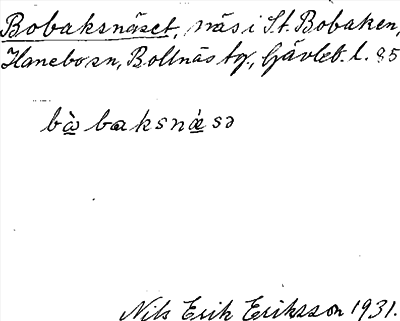 Bobaksnäset, näs i St. Bobaken,
Hanebo sn, Bollnäs tg., Gävleb. l. 85
bà̱baksnǽ̱sə
Nils Erik Eriksson 1931.